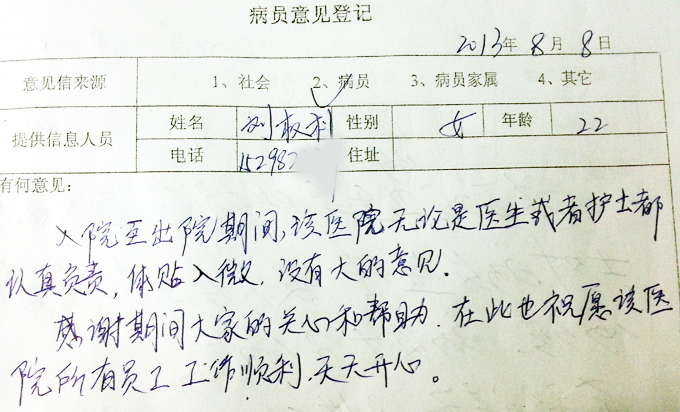 病员意见登记
2013年8月8日
意见信来源 1、社会 2、病员 3、病员家属 4、其它
提供信息人员 姓名 刘 性别 女 年龄 22
电话 152982 住址
有何意见:
入院至出院期间,该医院无论是医生或者护士都
认真负责,体贴入微,没有大的意见.
感谢期间大家的关心和帮助.在此也祝愿该医
院所有员工工作顺利,天天开心。